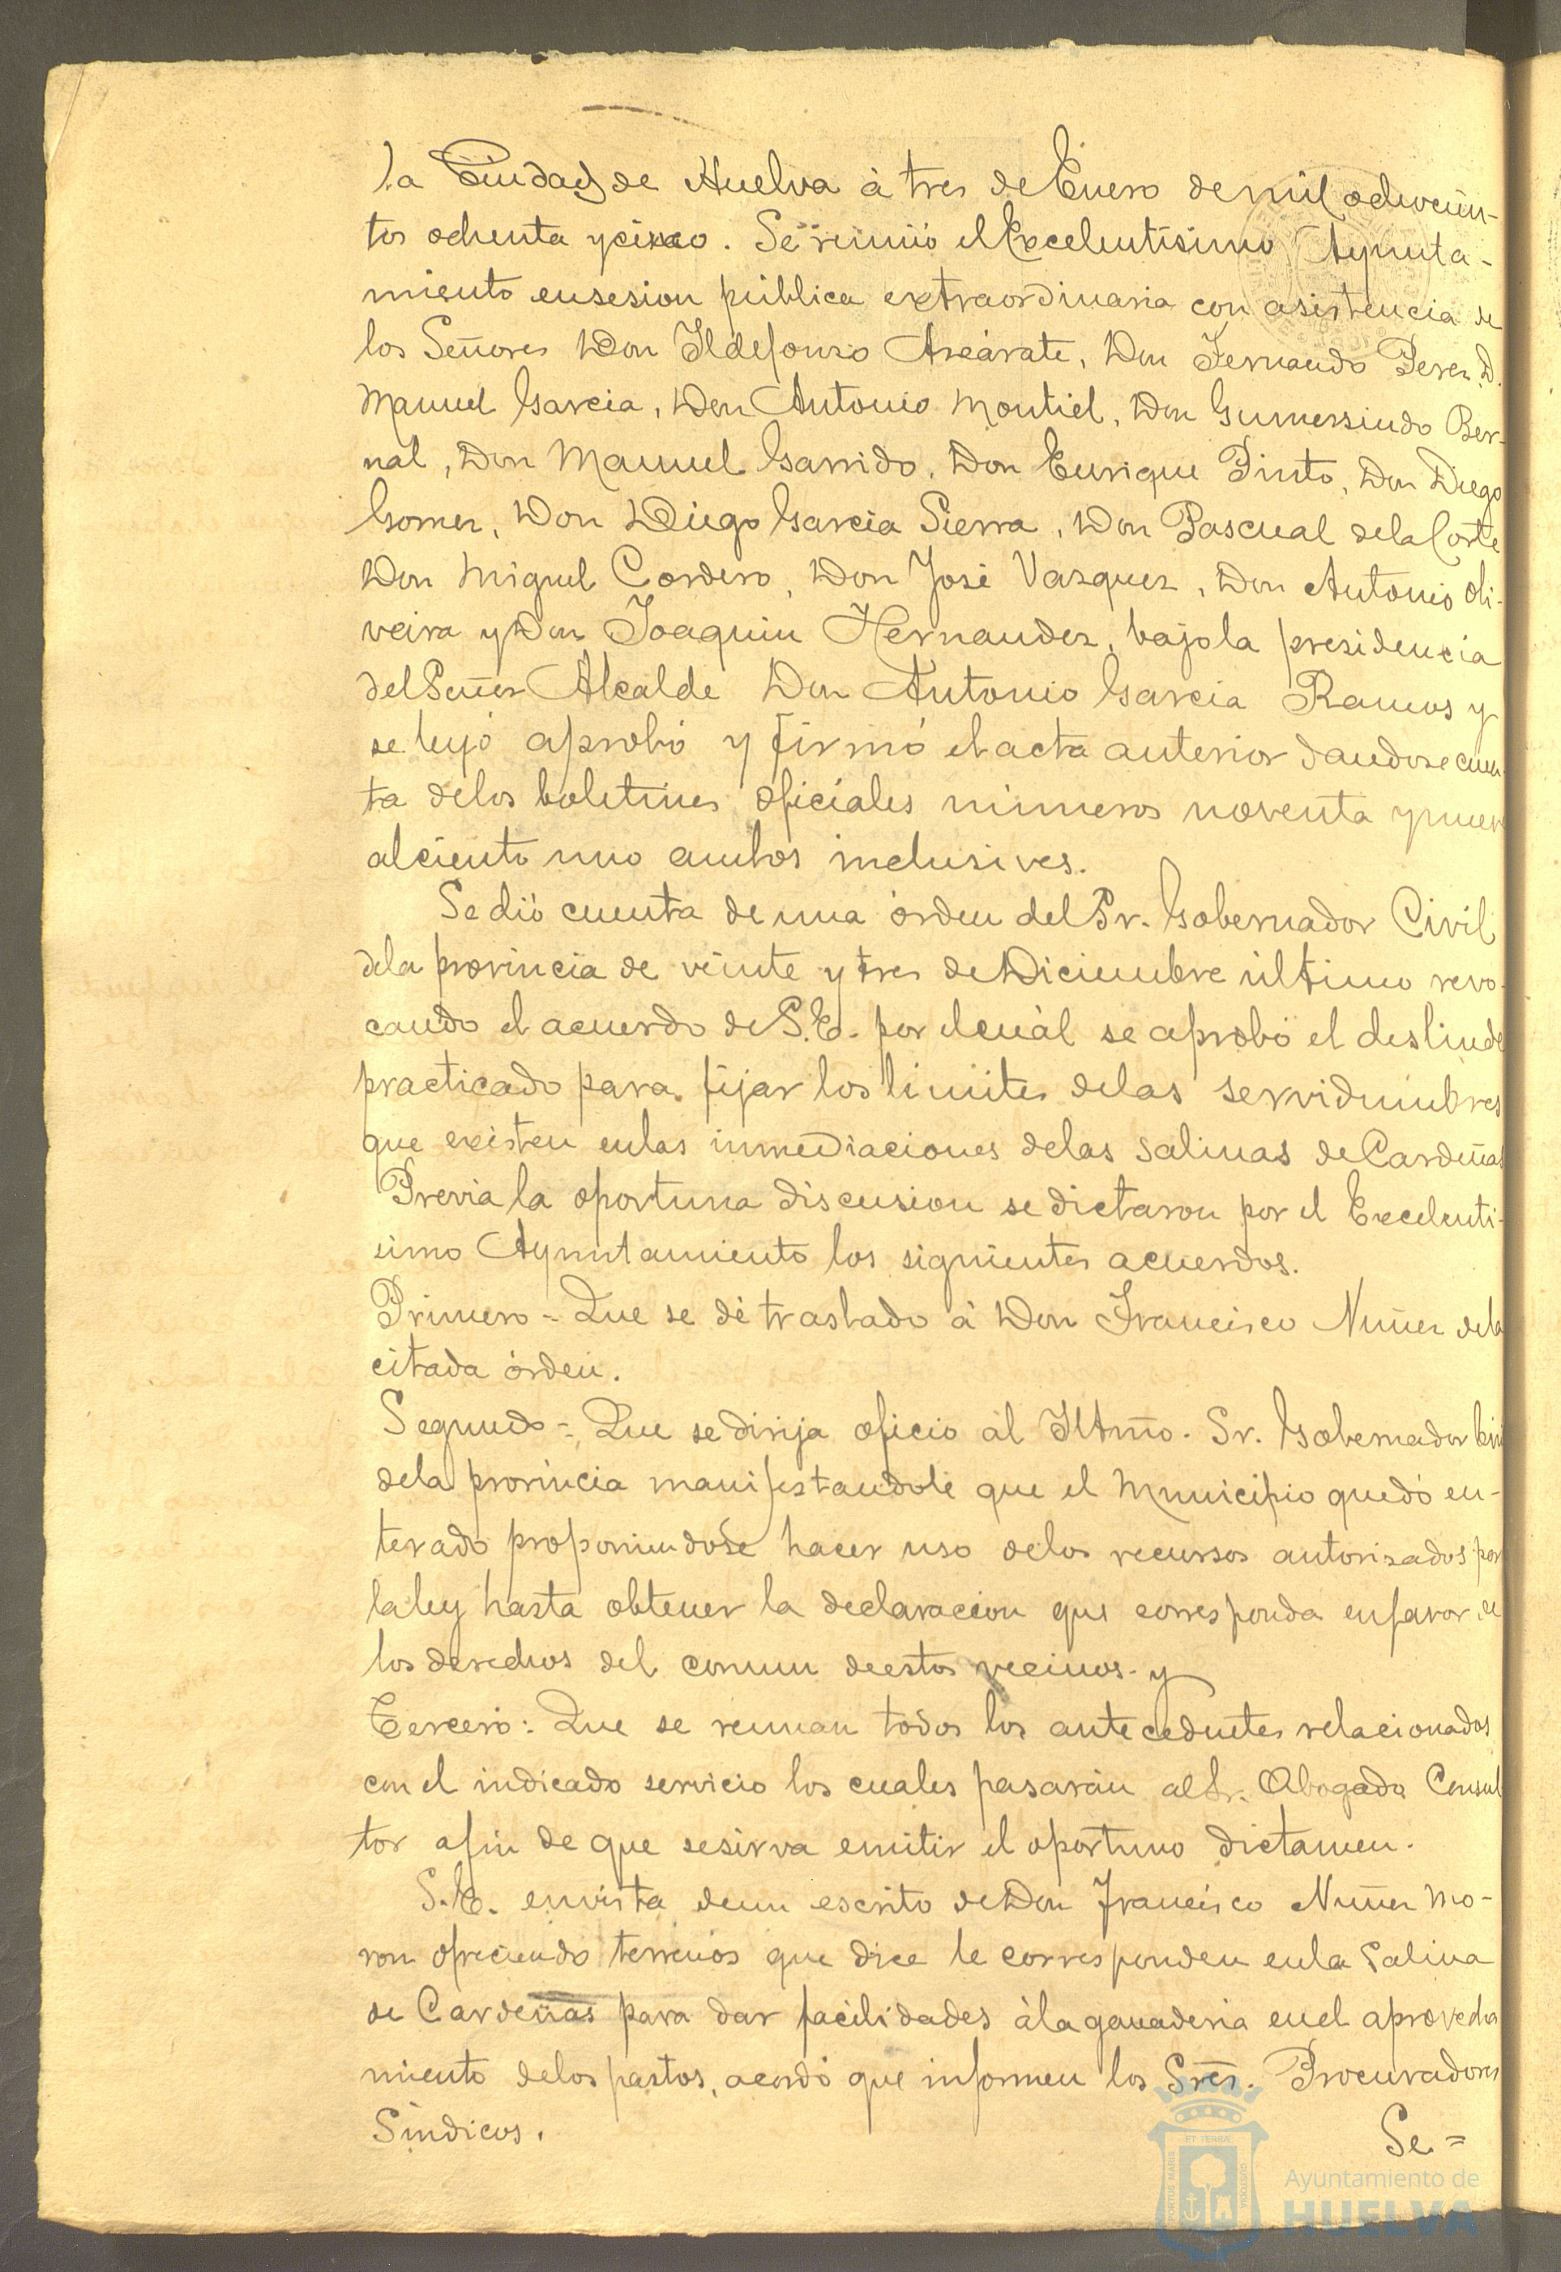 la Ciudad de Huelva à tres de Enero de mil ochocien-
tos ochenta y cinco. Se reunió el Excelentísimo Ayunta-
miento en sesion pública extraordinaria con asistencia de
los Señores Don Ildefonso Azcárate, Don Fernando Perez, D.
Manuel Garcia, Don Antonio Montiel, Don Gumersindo Ber-
nal, Don Manuel Garrido, Don Enrique Pinto, Don Diego
Gomez, Don Diego Garcia Sierra, Don Pascual de la Corte
Don Miguel Cordero, Don José Vazquez, Don Antonio Oli-
veira y Don Joaquin Hernandez, bajo la presidencia
del Señor Alcalde Don Antonio Garcia Ramos y
se leyó aprobó y firmó el acta anterior dandose cuen
ta de los boletines oficiales números noventa y nueve
al ciento uno ambos inclusives.
Se dió cuenta de una órden del Sr. Gobernador Civil
de la provincia de veinte y tres de Diciembre último revo-
cando el acuerdo de S.E. por el cuál se aprobó el deslinde
practicado para fijar los limites de las servidumbres
que existen en las inmediaciones de las salinas de Cardeñas
Previa la oportuna discusion se dictaron por el Excelenti-
simo Ayuntamiento los siguientes acuerdos.
Primero = Que se dé traslado á Don Francisco Nuñez de la
citada órden.
Segundo = Que se dirija oficio al Iltmo. Sr. Gobernador Civil
de la provincia manifestandole que el Municipio quedó en-
terado proponiendose hacer uso de los recursos autorizados por
la ley hasta obtener la declaracion que corresponda en favor de
los derechos del comun de estos vecinos. y
Tercero: Que se reunan todos los antecedentes relacionados
con el indicado servicio los cuales pasarán al Sr. Abogado Consul
tor a fin de que se sirva emitir el oportuno dictamen.
S.E. en vista de un escrito de Don Francisco Nuñez Mo-
ron ofreciendo terrenos que dice le corresponden en la Salina
de Cardeñas para dar facilidades á la ganaderia en el aprovecha
miento de los pastos, acordó que informen los Sres. Procuradores
Síndicos.
Se =
PORTUS MARIS
ET TERRÆ
CUSTODIA
Ayuntamiento de
HUELVA